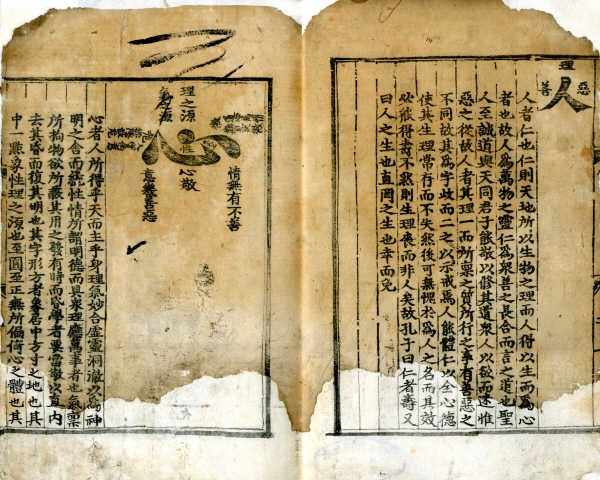 理
善人惡
人者仁也仁則天地所以生物之理而人得以生而爲心
者也故人爲萬物之靈仁爲衆善之長合而言之道也聖
人至誠道與天同君子能敬以修其道衆人以欲而迷惟
惡之從故人者其理一而所稟之質所行之事有善惡之
不同故其爲字歧而二之以示戒焉人能體仁以全心德
使其生理常存而不失然後可無愧於爲人之名而其效
必能得壽不然則生理喪而非人矣故孔子曰仁者壽又
曰人之生也直罔之生也幸而免
情無有不善
理之源
心
性
心敬
氣之源
意幾善惡
心者人所得乎天而主乎身理氣妙合虛靈洞澈以爲神
明之舍而統性情所謂明德而具衆理應萬事者也氣稟
所拘物欲所蔽其用之發有時而昏學者要當敬以直內
去其昏而復其明也其字形方者象居中方寸之地也其
中一點象性理之源也至圓至正無所偏倚心之體也其